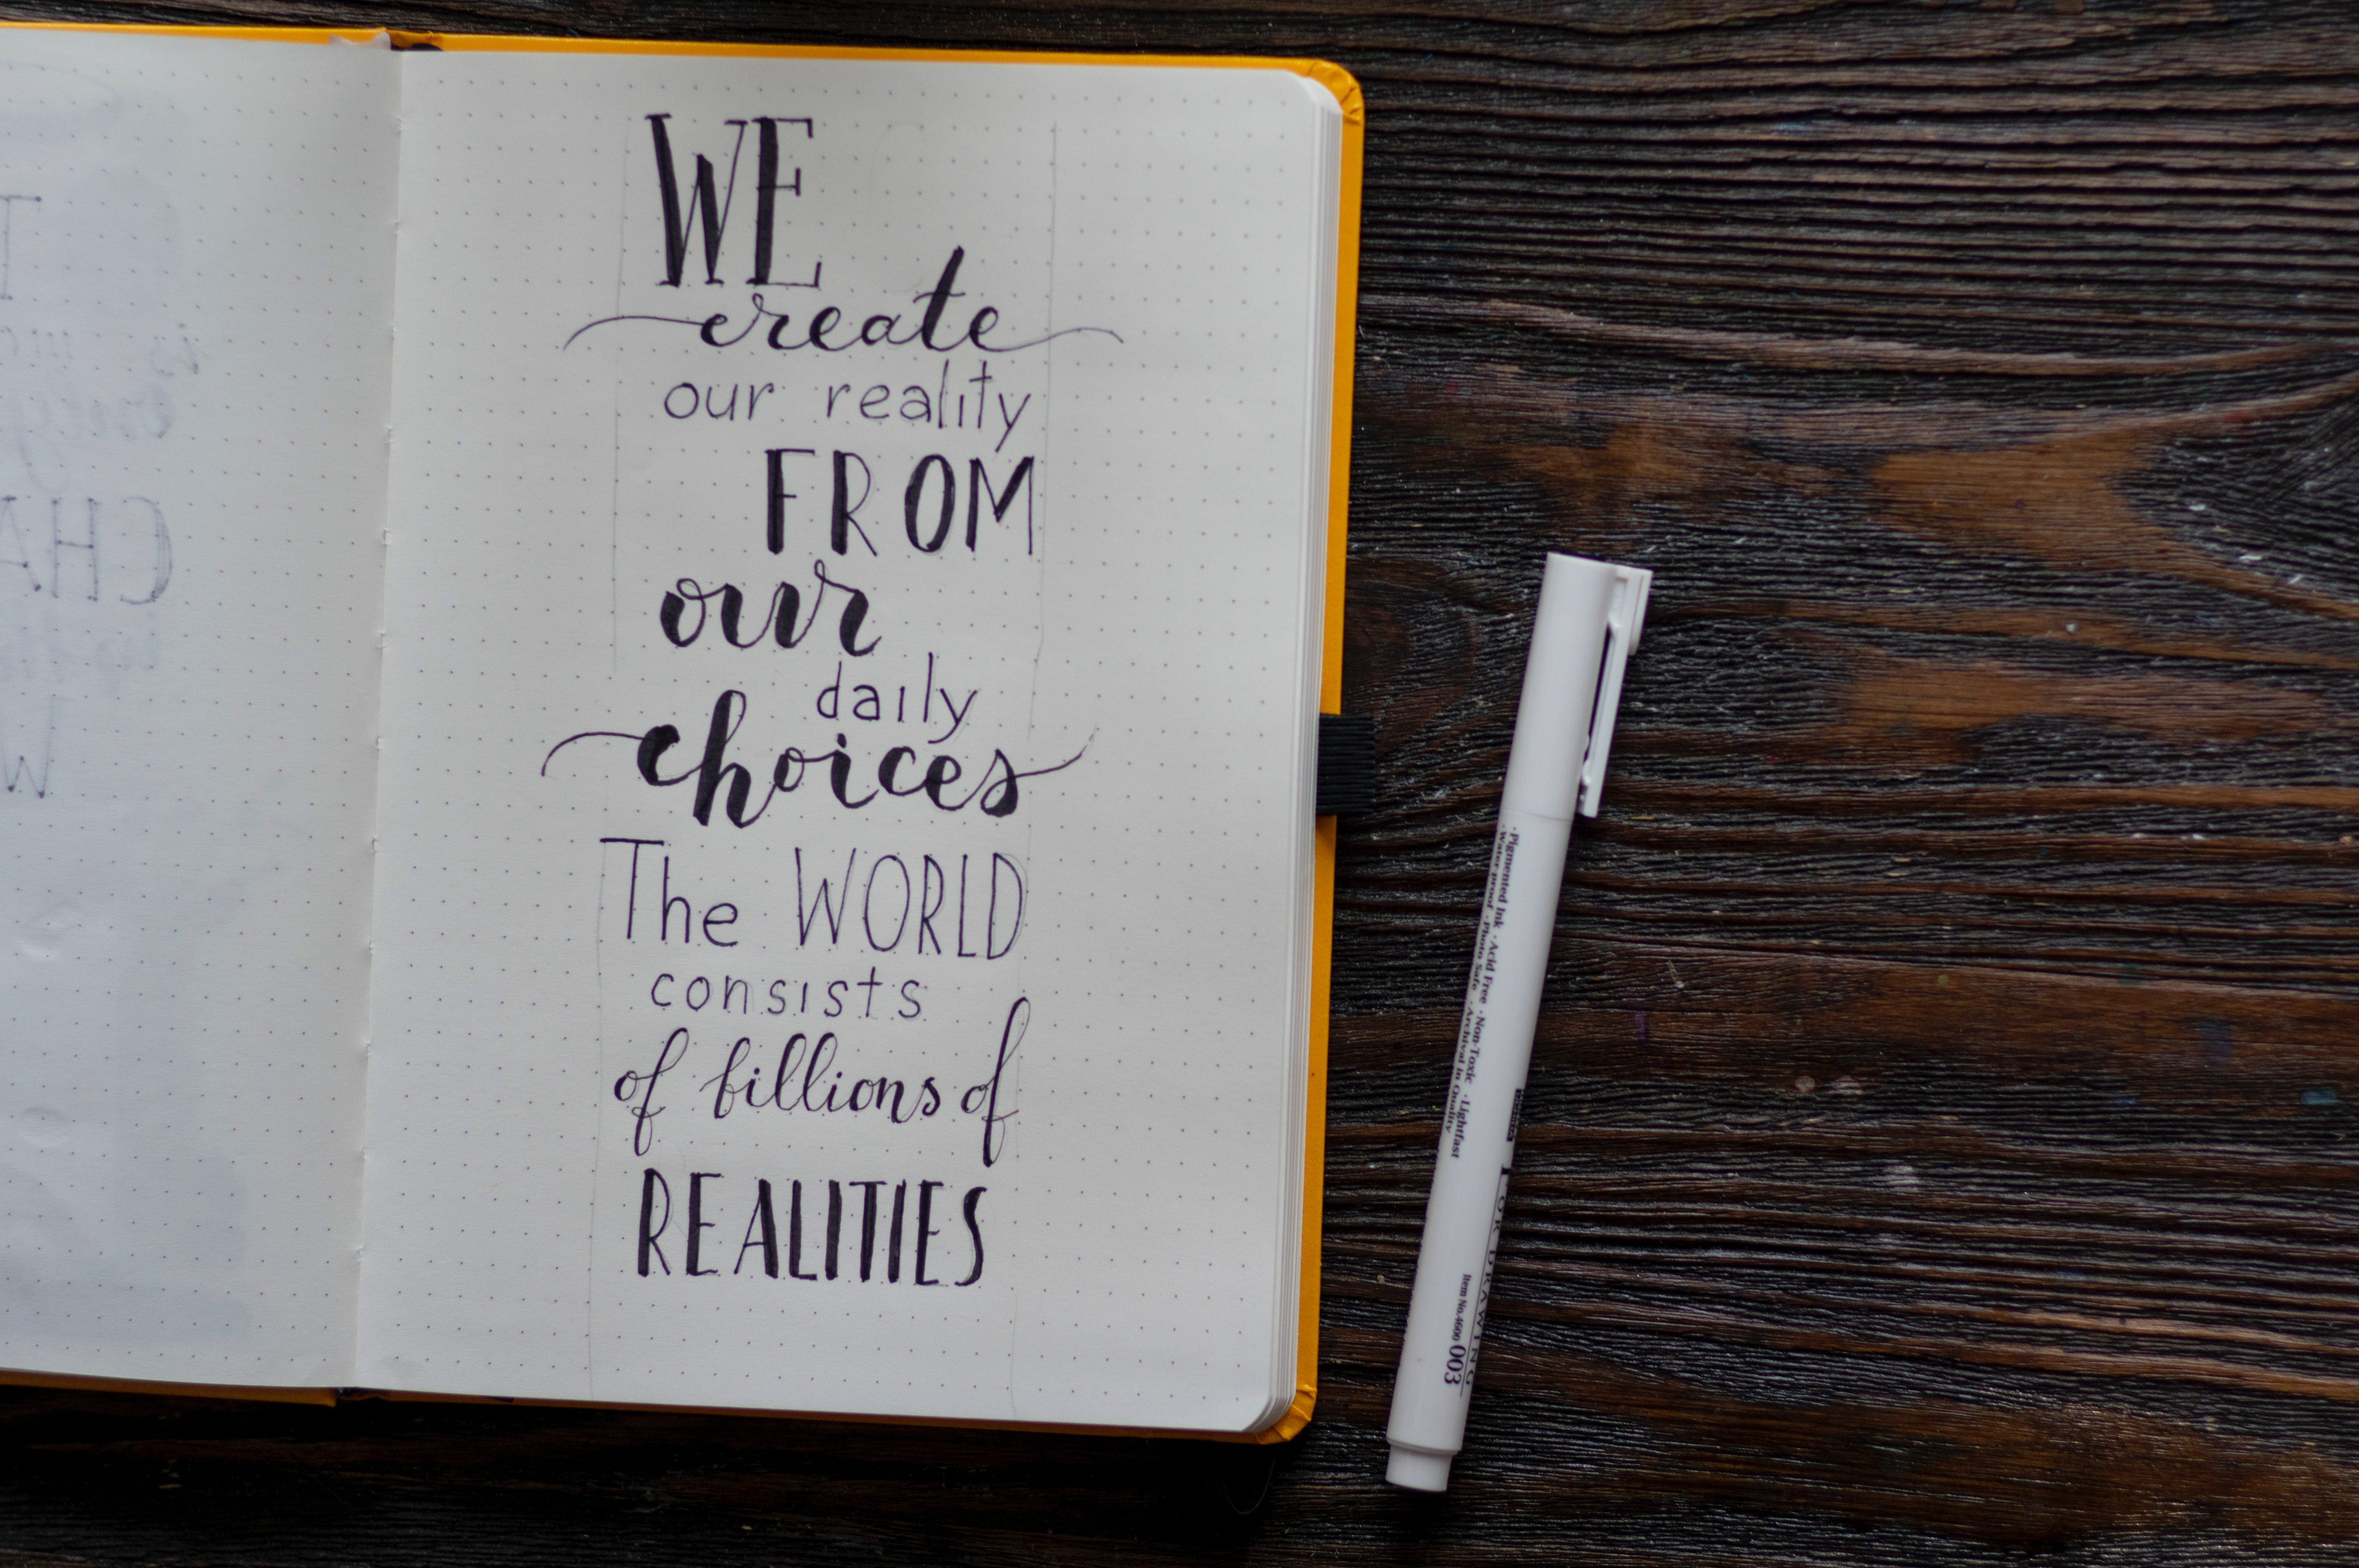 WE
create
our reality
FROM
our
daily
choices
The WORLD
consists
of billions of
REALITIES
·Pigmented Ink ·Acid Free ·Non-Toxic ·Lightfast
·Waterproof ·Photo Safe ·Archival in Quality
DRAWING
Item No.4600 003